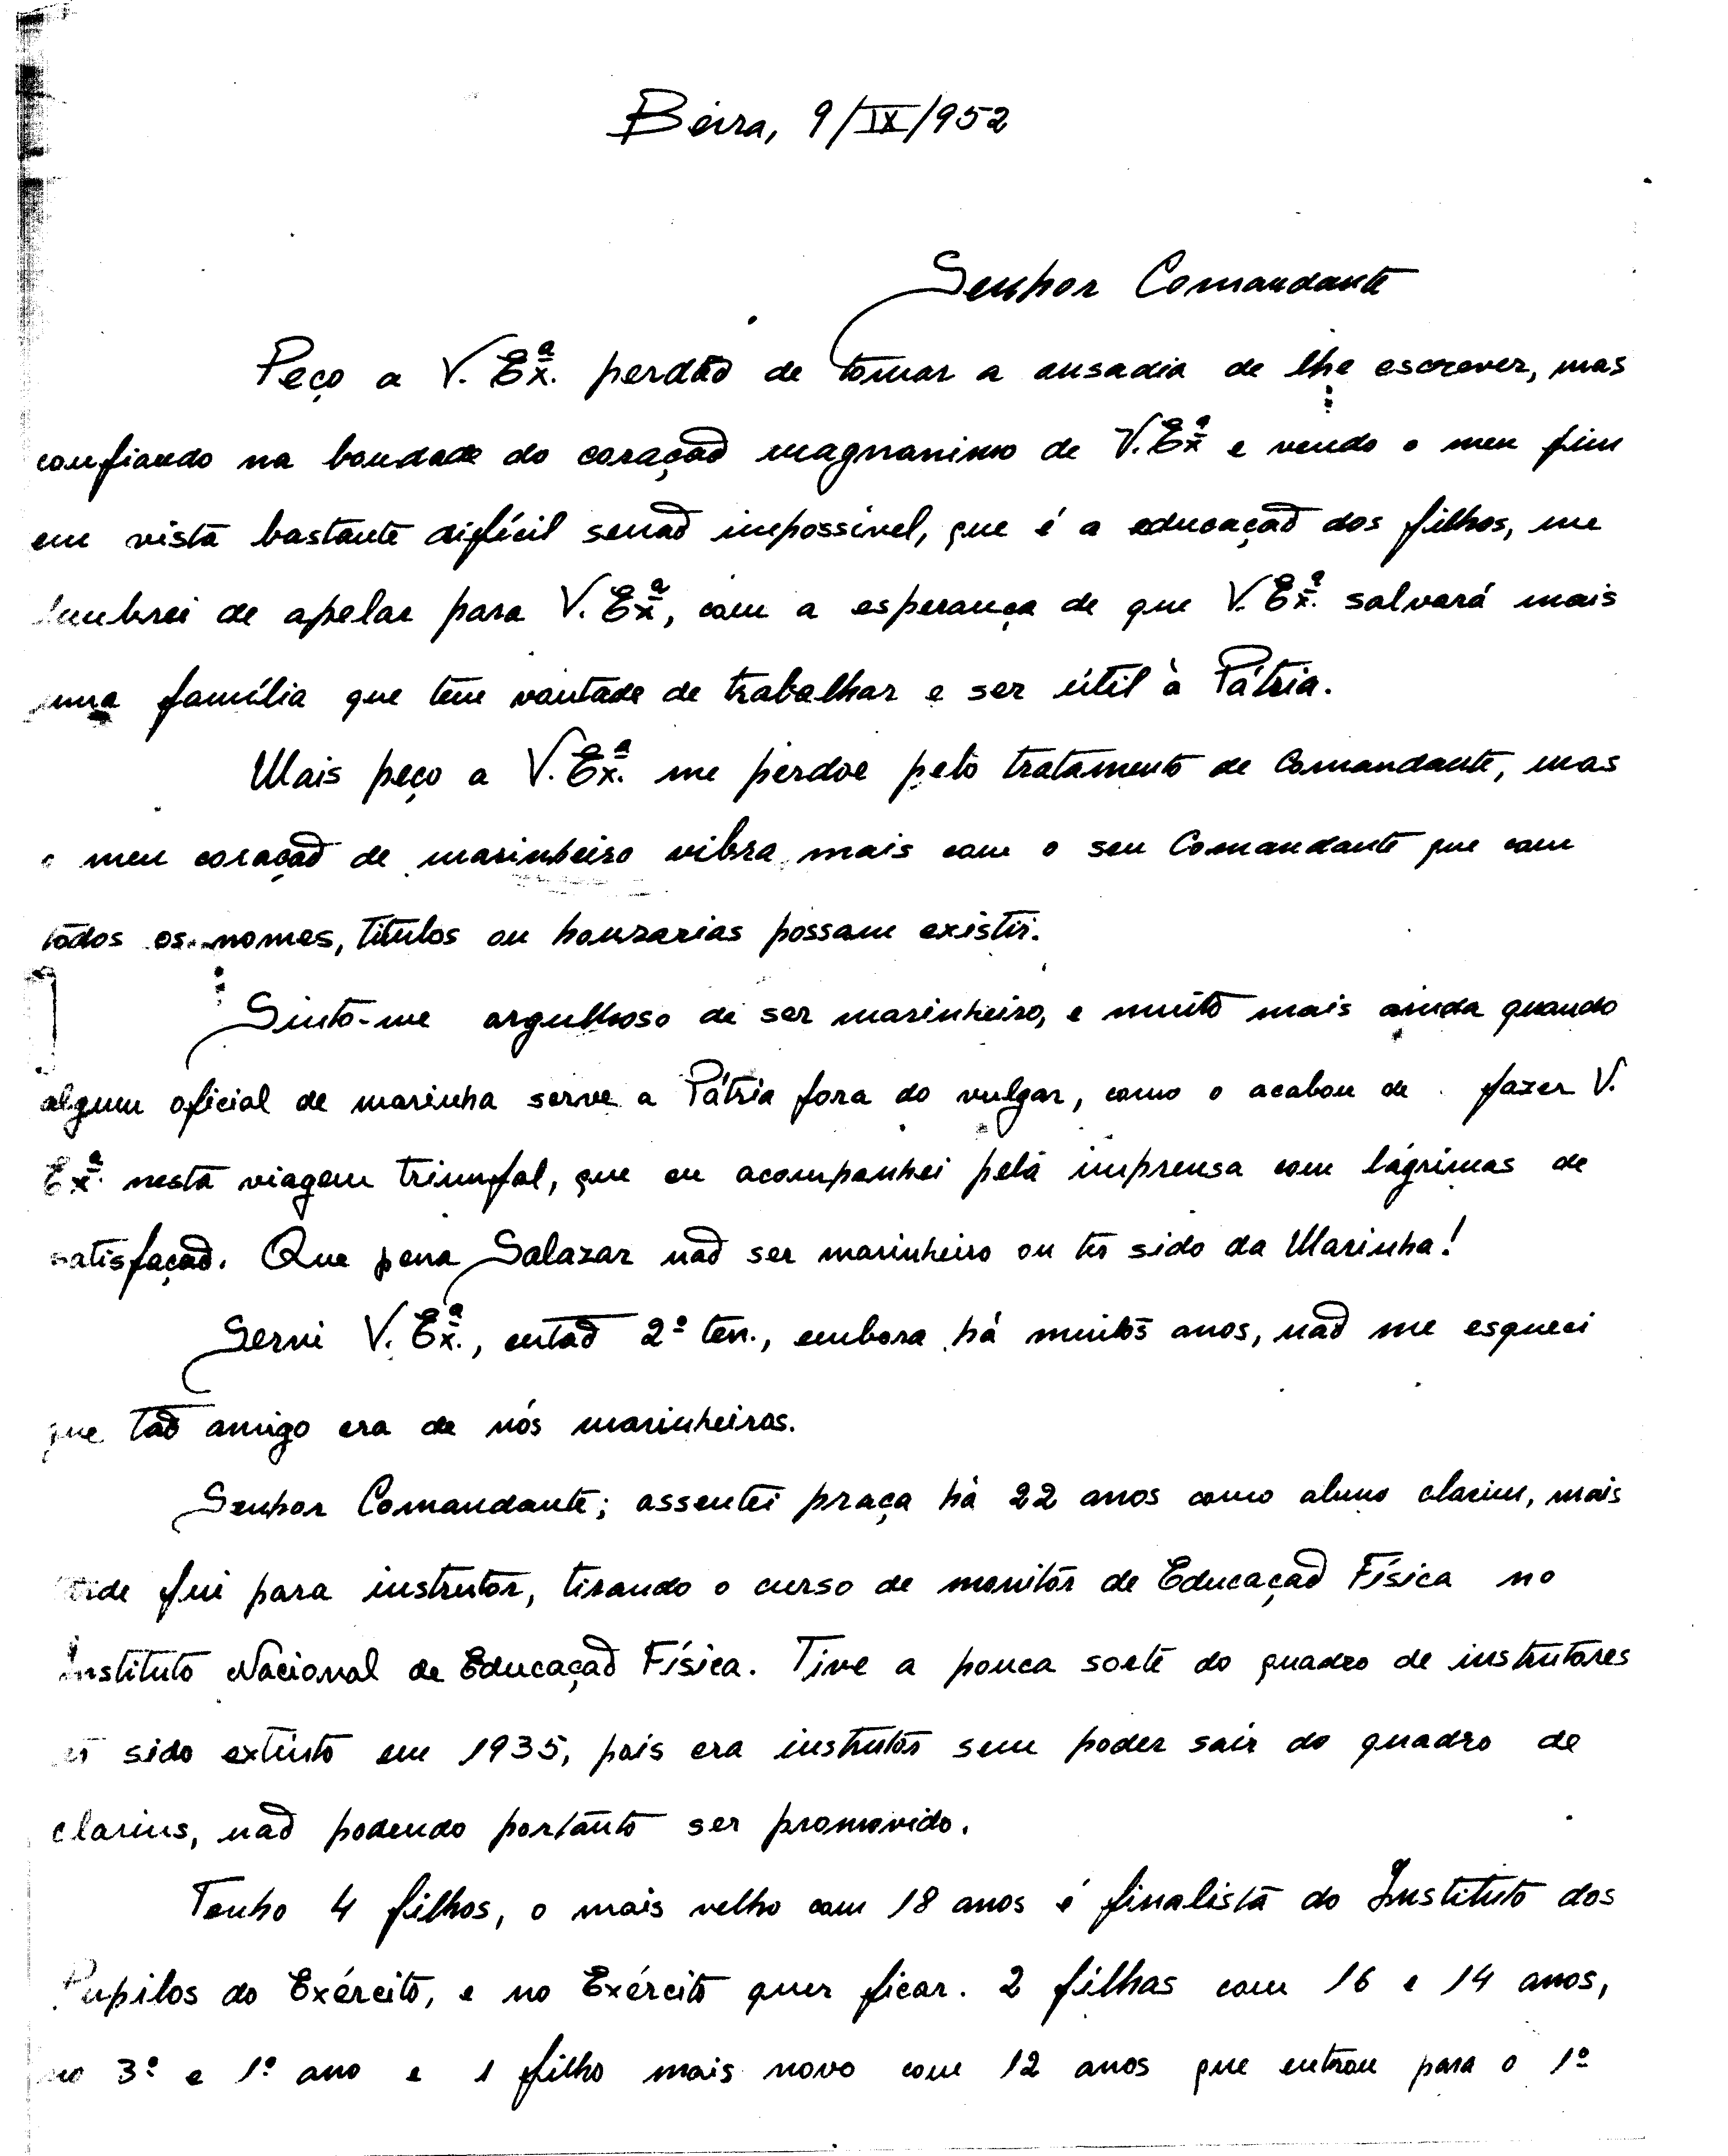 Beira, 9/IX/952
Senhor Comandante
Peço a V. Exª. perdão de tomar a ousadia de lhe escrever, mas
confiando na bondade do coração magnanimo de V. Exª e vendo o meu fim
em vista bastante difícil senão impossível, que é a educação dos filhos, me
lembrei de apelar para V. Exª, com a esperança de que V. Exª. salvará mais
uma família que tem vontade de trabalhar e ser útil à Pátria.
Mais peço a V. Exª. me perdoe pelo tratamento de Comandante, mas
o meu coração de marinheiro vibra mais com o seu Comandante que com
todos os nomes, titulos ou honrarias possam existir.
Sinto-me orgulhoso de ser marinheiro, e muito mais ainda quando
algum oficial de marinha serve a Pátria fora do vulgar, como o acabou de fazer V.
Exª. nesta viagem triunfal, que eu acompanhei pela imprensa com lágrimas de
satisfação. Que pena Salazar não ser marinheiro ou ter sido da Marinha!
Servi V. Exª., então 2º ten., embora há muitos anos, não me esqueci
que tão amigo era de nós marinheiros.
Senhor Comandante; assentei praça há 22 anos como aluno clarim, mais
tarde fui para instrutor, tirando o curso de monitor de Educação Física no
Instituto Nacional de Educação Física. Tive a pouca sorte do quadro de instrutores
ter sido extinto em 1935, pois era instrutor sem poder sair do quadro de
clarins, não podendo portanto ser promovido.
Tenho 4 filhos, o mais velho com 18 anos é finalista do Instituto dos
Pupilos do Exército, e no Exército quer ficar. 2 filhas com 16 e 14 anos,
no 3º e 1º ano e 1 filho mais novo com 12 anos que entrou para o 1º